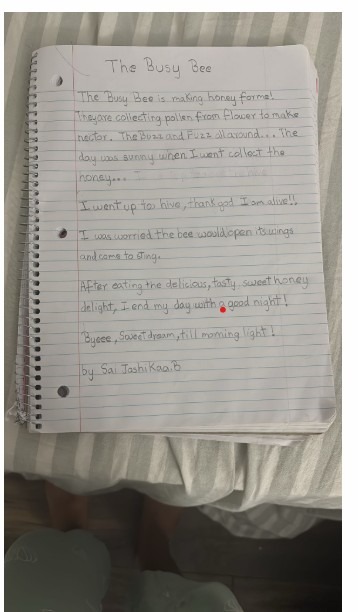 The Busy Bee
The Busy Bee is making honey for me!
Theyare collecting pollen from flower to make
nectar. The Buzz and Fuzz all around... The
day was sunny when I went collect the
honey...
I went up to hive, thank god I am alive!!
I was worried the bee would open its wings
and come to sting.
After eating the delicious, tasty sweet honey
delight, I end my day with a good night!
Byeee, Sweet dream, till morning light!
by Sai Joshikaa.B